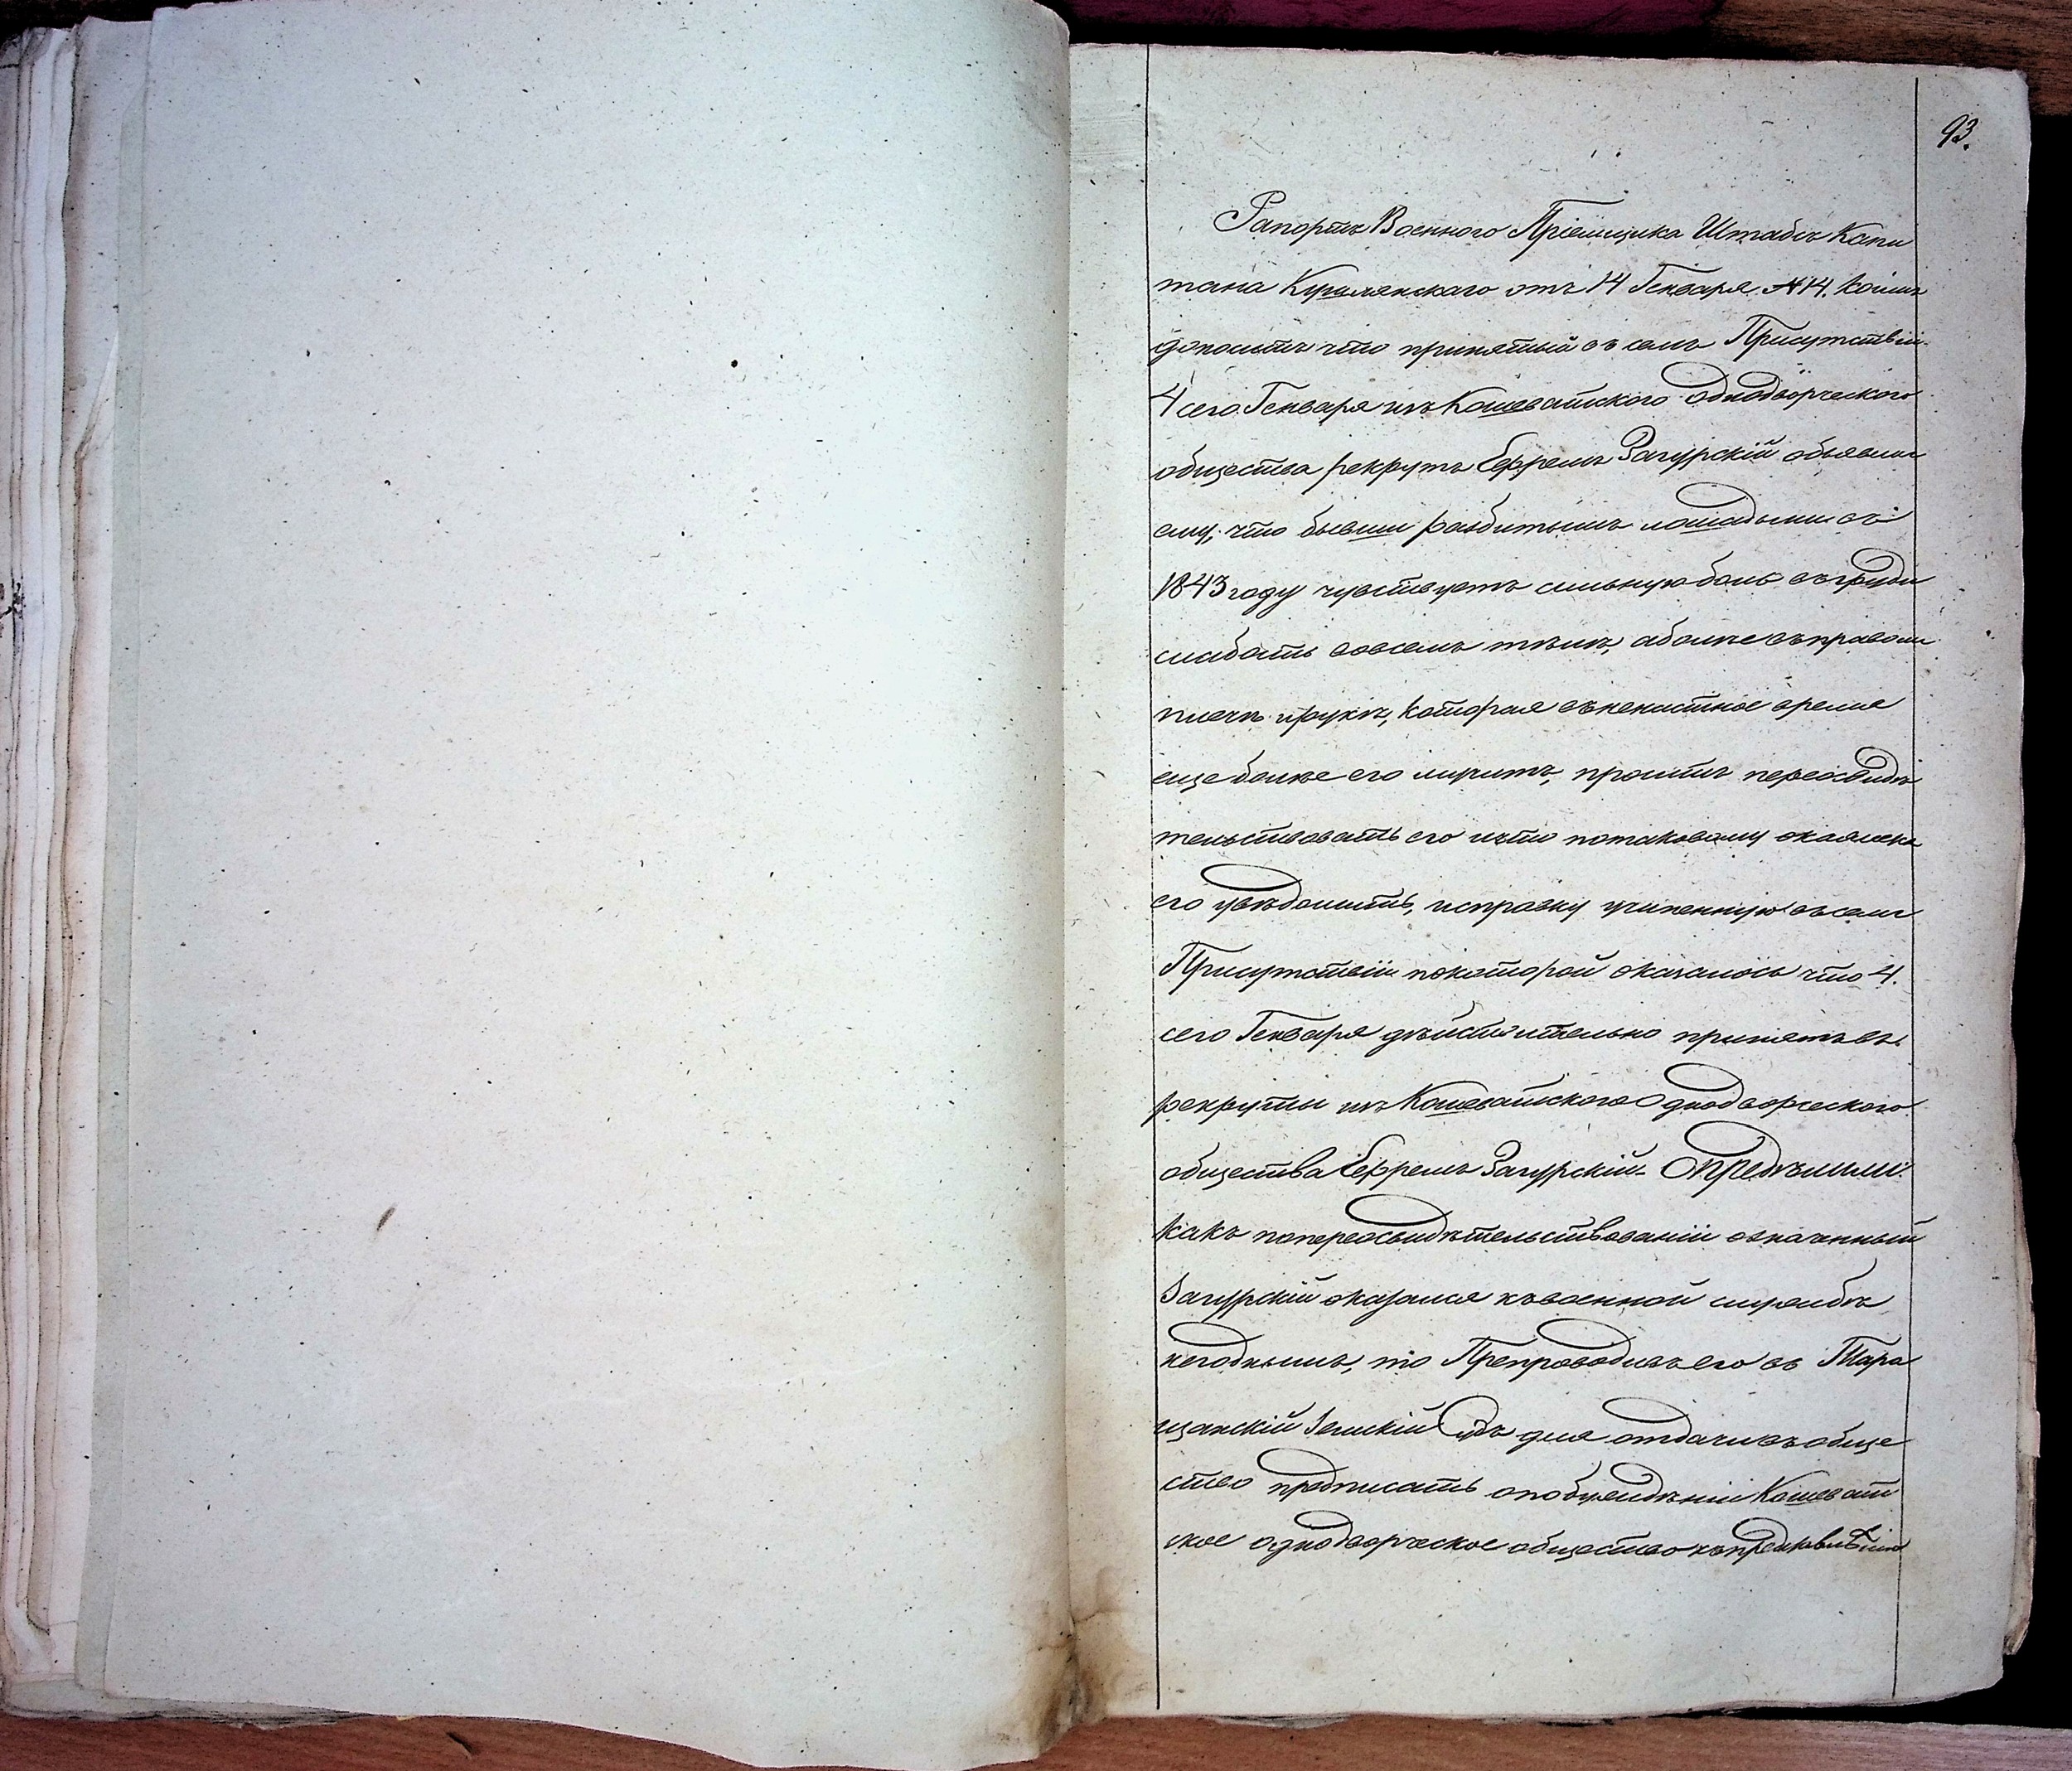 93.
Рапортъ Военного Пріемщика Штабсъ Капи
тана от 14 Генваря №14. коимъ
доноситъ что принятый въ семъ Присутствіи
4 сего Генваря изъ Кошеватского Однодворческого
общества рекрутъ Ефремъ Загурскій объявилъ
ему, что бывши разбитымъ лошадьми въ
1843 году чувствуетъ сильную боль въ груди
слабость во всемъ тѣлѣ, а болѣе въ правомъ
плечѣ и рукѣ, которая въ ненастное время
еще болѣе его мучитъ, проситъ переосвидѣ
тельствовать его и что по таковому окажется
его увѣдомить, и справку учиненную въ семъ
Присутствіи по которой оказалось что 4.
сего Генваря дѣйствительно принятъ въ
рекруты изъ Кошеватского Однодворческого
общества Ефремъ Загурскій. Опредѣлили:
какъ по переосвидѣтельствованіи означенный
Загурскій оказался къ военной службѣ
негоднымъ, то Препроводивъ его въ Тара
щанскій Земскій Судъ для отдачи въ обще
ство предписать о побужденіи Кошеват
ское однодворческое общество къ